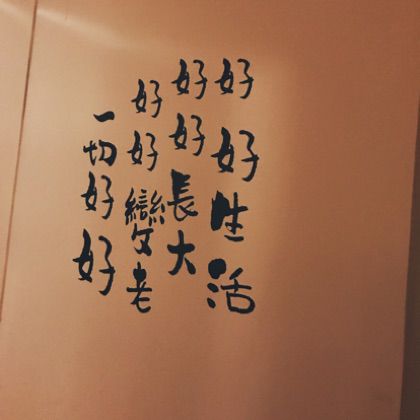 好好性活
好好長大
好好變老
一切好好